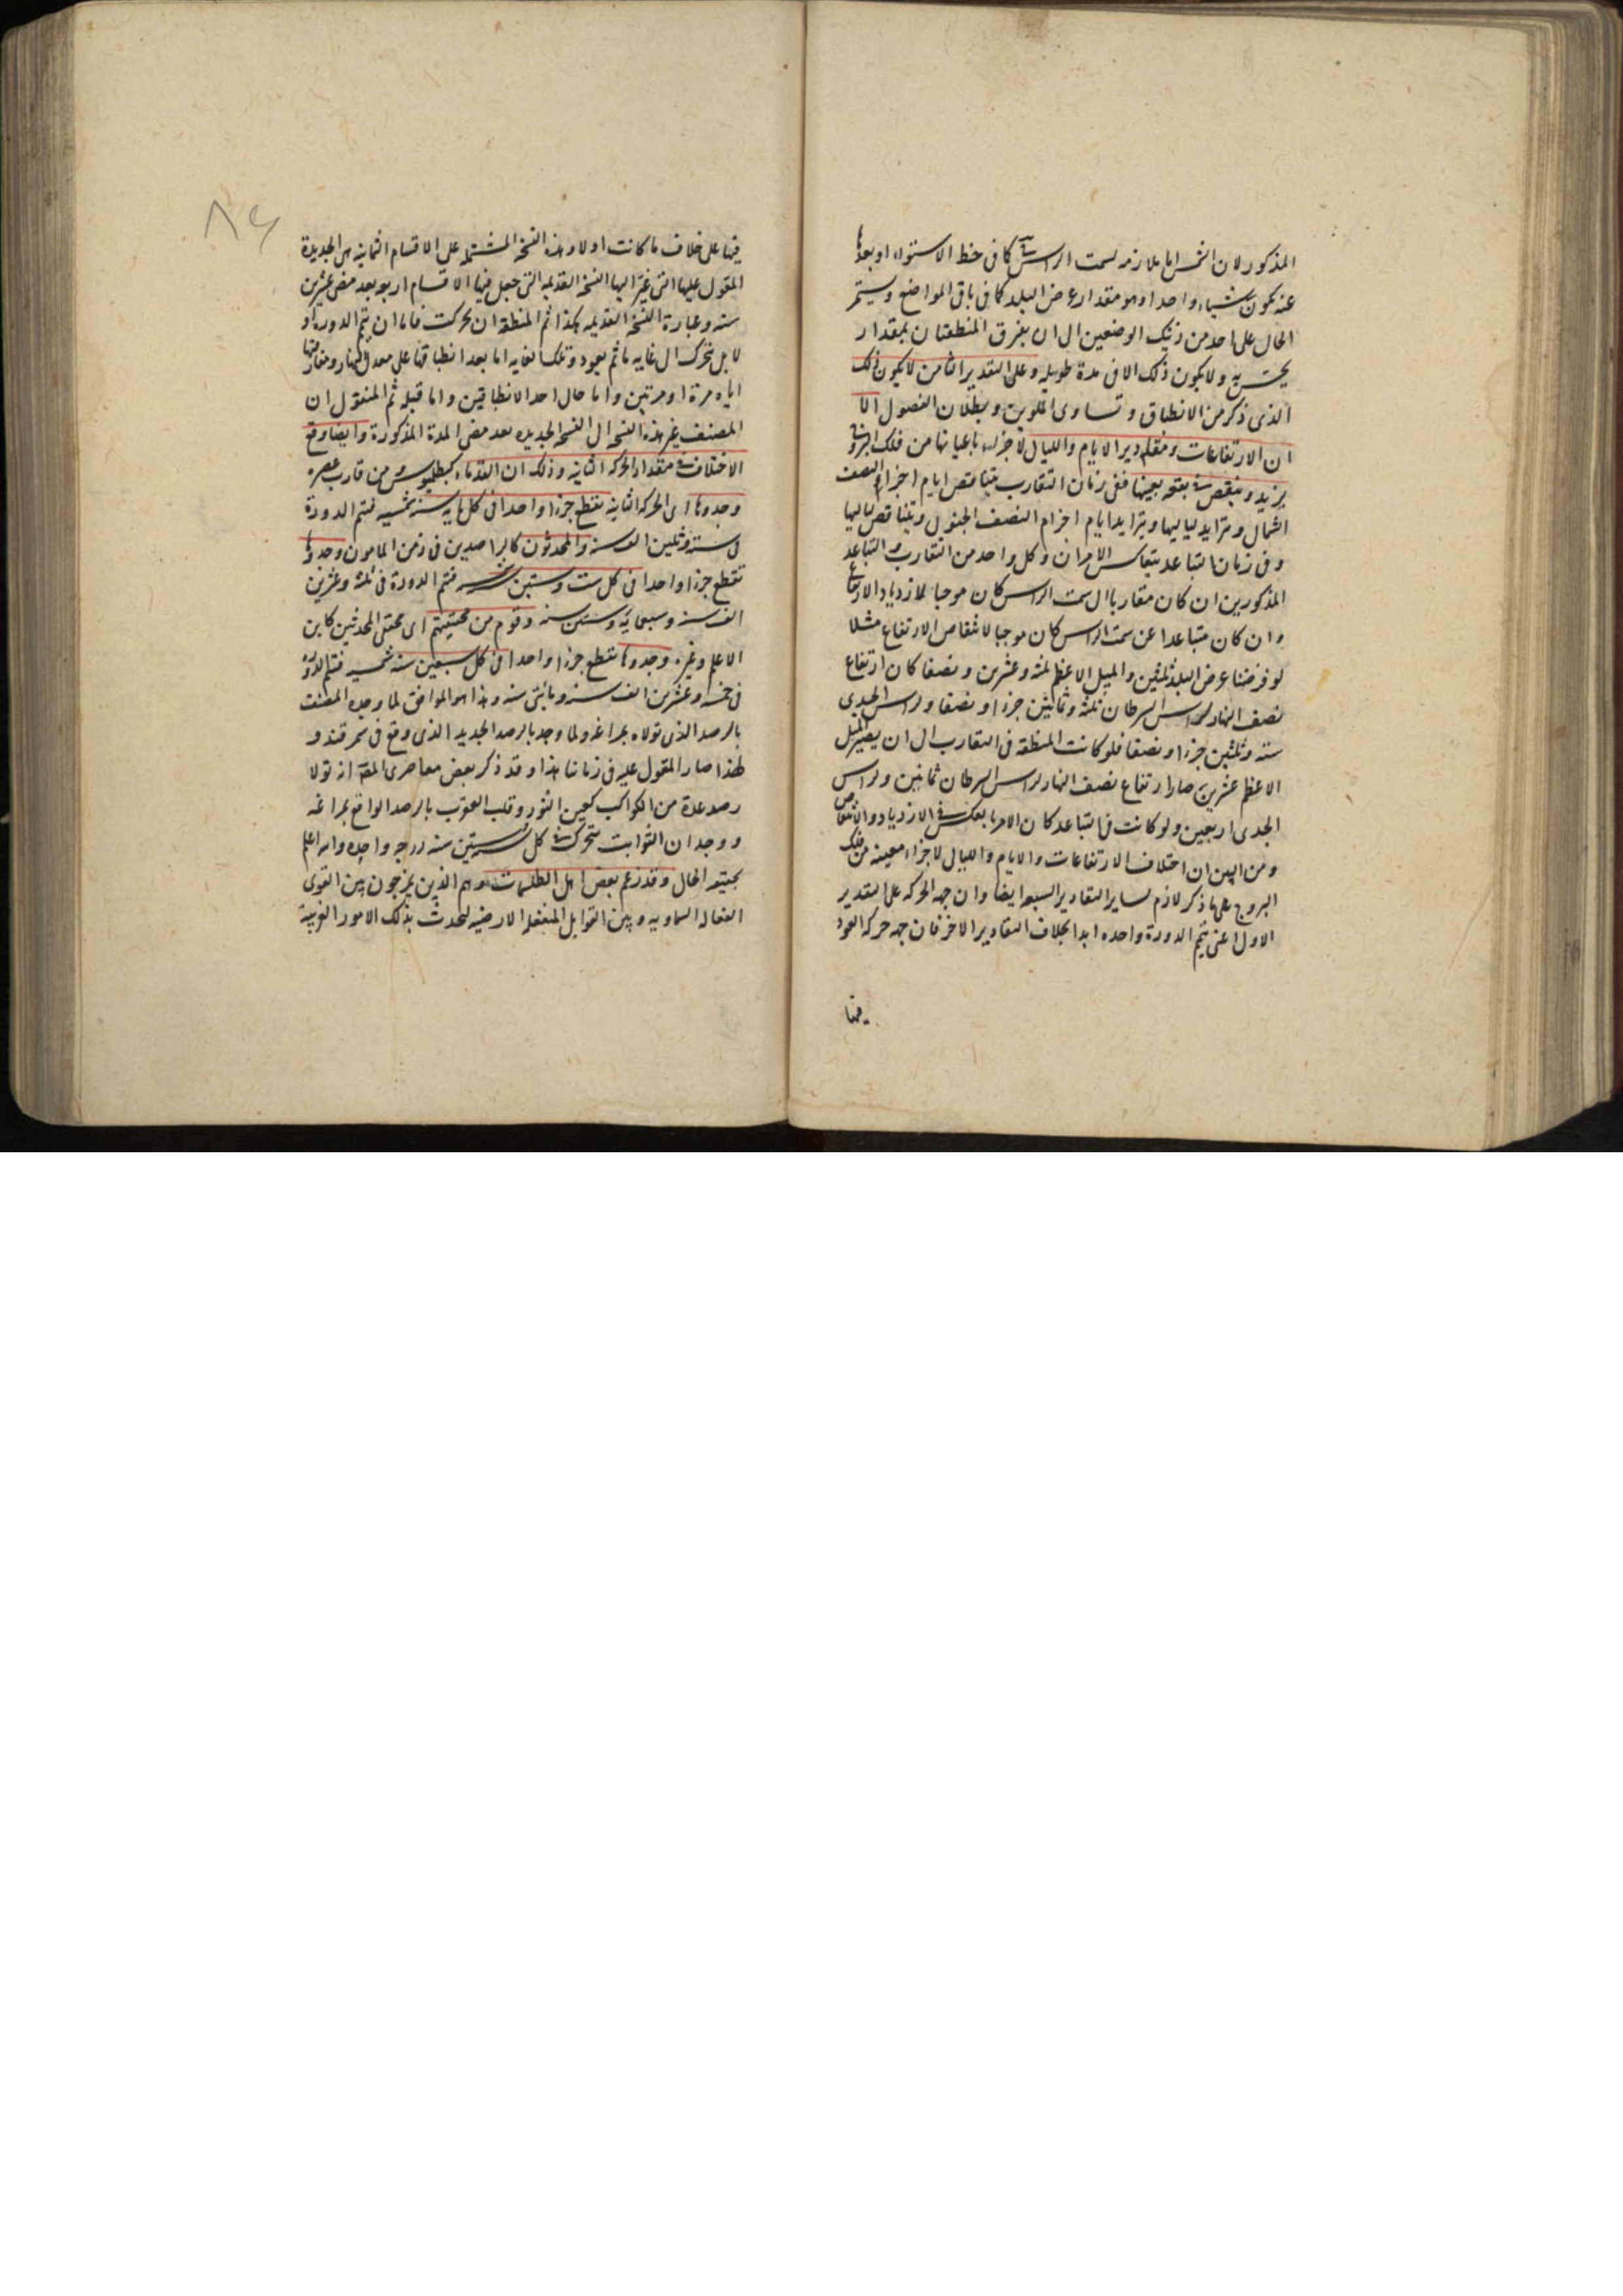 المذكور لان الشمس اما ملازمه لسمت الراس كما فى خط الاستواء او بعدها
عنه يكون شيئا واحدا وهو مقدار عرض البلد كما فى باقى المواضع ويستمر
الحال على احد من ذينك الوضعين الى ان يفترق المنطقتان بمقدار
يحس به ولا يكون ذلك الا فى مدة طويله وعلى التقدير الثامن لا يكون ذلك
الذى ذكر من الانطباق وتساوى الملوين وبطلان الفصول الا
ان الارتفاعات ومقادير الايام والليالى لاجزاء باعيانها من فلك البروج
يزيد وينقص فى بقعه بعينها ففى زمان التقارب يتناقص ايام اجزاء النصف
الشمالى ويتزايد لياليها ويتزايد ايام اجزاء النصف الجنوبى ويتناقص لياليها
وفى زمان التباعد يتعاكس الامران وكل واحد من التقارب والتباعد
المذكورين ان كان متقاربا الى سمت الراس كان موجبا لازدياد الارتفاع
وان كان متباعدا عن سمت الراس كان موجبا لانتقاص الارتفاع مثلا
لو فرضنا عرض البلد ثلثين والميل الاعظم ثلثة وعشرين ونصفا كان ارتفاع
نصف النهار لراس السرطان ثلثة وثمانين جزءا ونصفا ولراس الجدى
ستة وثلثين جزءا ونصفا فلو كانت المنطقة فى التقارب الى ان يصير الميل
الاعظم عشرين صار ارتفاع نصف النهار لراس السرطان ثمانين ولراس
الجدى اربعين ولو كانت فى التباعد كان الامر بالعكس فى الازدياد والانتقاص
ومن البين ان اختلاف الارتفاعات والايام والليالى لاجزاء معينه من فلك
البروج على ما ذكر لازم لساير التقادير السبعه ايضا وان جهه الحركه على التقدير
الاول اعنى تتم الدورة واحده ابدا بخلاف التقادير الاخر فان جهه حركه العود
فيها
فيها على خلاف ما كانت اولا وهذه النسخه المشتمله على الاقسام الثمانيه هى الجديدة
المعول عليها التى غير اليها النسخه القديمه التى جعل فيها الاقسام اربعه بعد مضى عشرين
سنه وعبارة النسخه القديمه هكذا ثم المنطقه ان تحركت فاما ان يتم الدورة او
لا بل تتحرك الى غايه ما ثم يعود وتلك الغايه اما بعد انطباقها على معدل النهار ومفارقتها
اياه مرة او مرتين واما حال احد الانطباقين واما قبله ثم المنقول ان
المصنف غير هذه النسخه الى النسخه الجديده بعد مضى المدة المذكورة وايضا وقع
الاختلاف فى مقدار الحركه الثانيه وذلك ان القدماء كبطلميوس ومن قارب عصره
وجدوها اى الحركه الثانيه تقطع جزءا واحدا فى كل مايه سنه شمسيه فتتم الدورة
فى ستة وثلثين الف سنه والمحدثون كالراصدين فى زمن المامون وجدوها
تقطع جزءا واحدا فى كل ست وستين سنه فتتم الدورة فى ثلثة وعشرين
الف سنه وسبعمايه وستين سنه وقوم من محققيهم اى محققى المحدثين كابن
الاعلم وغيره وجدوها تقطع جزءا واحدا فى كل سبعين سنه شمسيه فتتم الدورة
فى خمسه وعشرين الف سنه ومائتى سنه وهذا هو الموافق لما وجده المصنف
بالرصد الذى تولاه بمراغه ولما وجد بالرصد الجديد الذى وقع فى سمرقند و
لهذا صار المعول عليه فى زماننا هذا وقد ذكر بعض معاصرى المص انه تولا
رصد عدة من الكواكب كعين الثور وقلب العقرب بالرصد الواقع بمراغه
ووجد ان الثوابت تتحرك فى كل ستين سنه درجه واحده والله اعلم
بحقيقه الحال وقد زعم بعض اهل الطلسمات وهم الذين يمزجون بين القوى
الفعاله السماويه وبين القوابل المنفعله الارضيه لتحدث بذلك الامور الغريبة